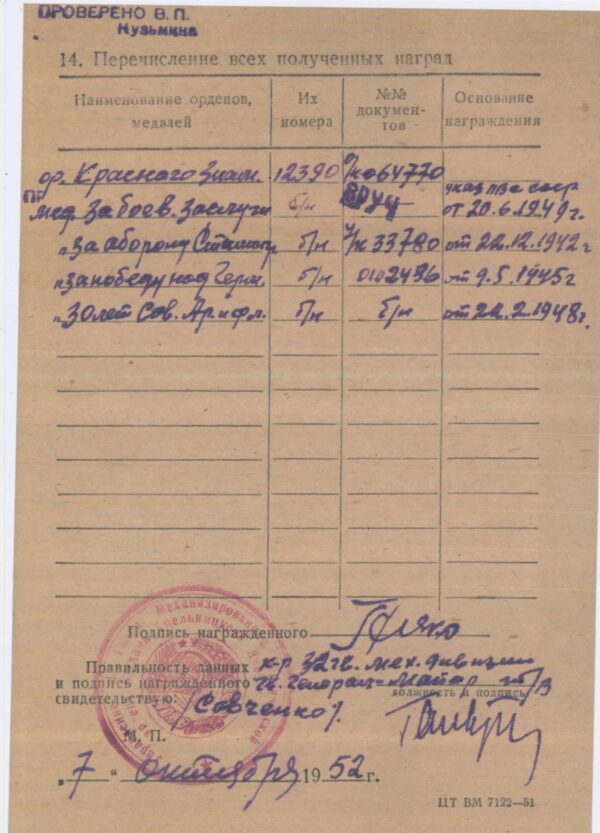 ПРОВЕРЕНО В. П.
Кузьмина
14. Перечисление всех полученных наград
Наименование орденов, медалей
Их номера
№№ документов
Основание награждения
ор. Красного Знам. 12390 064770
мед. За боев. Заслуги б/н Вруч указ ПВС СССР
от 20.6.1949г.
"За оборону б/н 33780 от 22.12.1942г
"За победу над Герм. б/н 0102486 от 9.5.1945г
"30 лет Сов. Ар. и фл. б/н б/н от 22.2.1948г.
Подпись награжденного
Правильность данных к-р 32 гв. мех. дивизии
и подпись награжденного гв. Генерал-Майор т/в
должность и подпись
свидетельствую: /Савченко/
М. П.
„7“ октября 1952 г.
ЦТ ВМ 7122—51